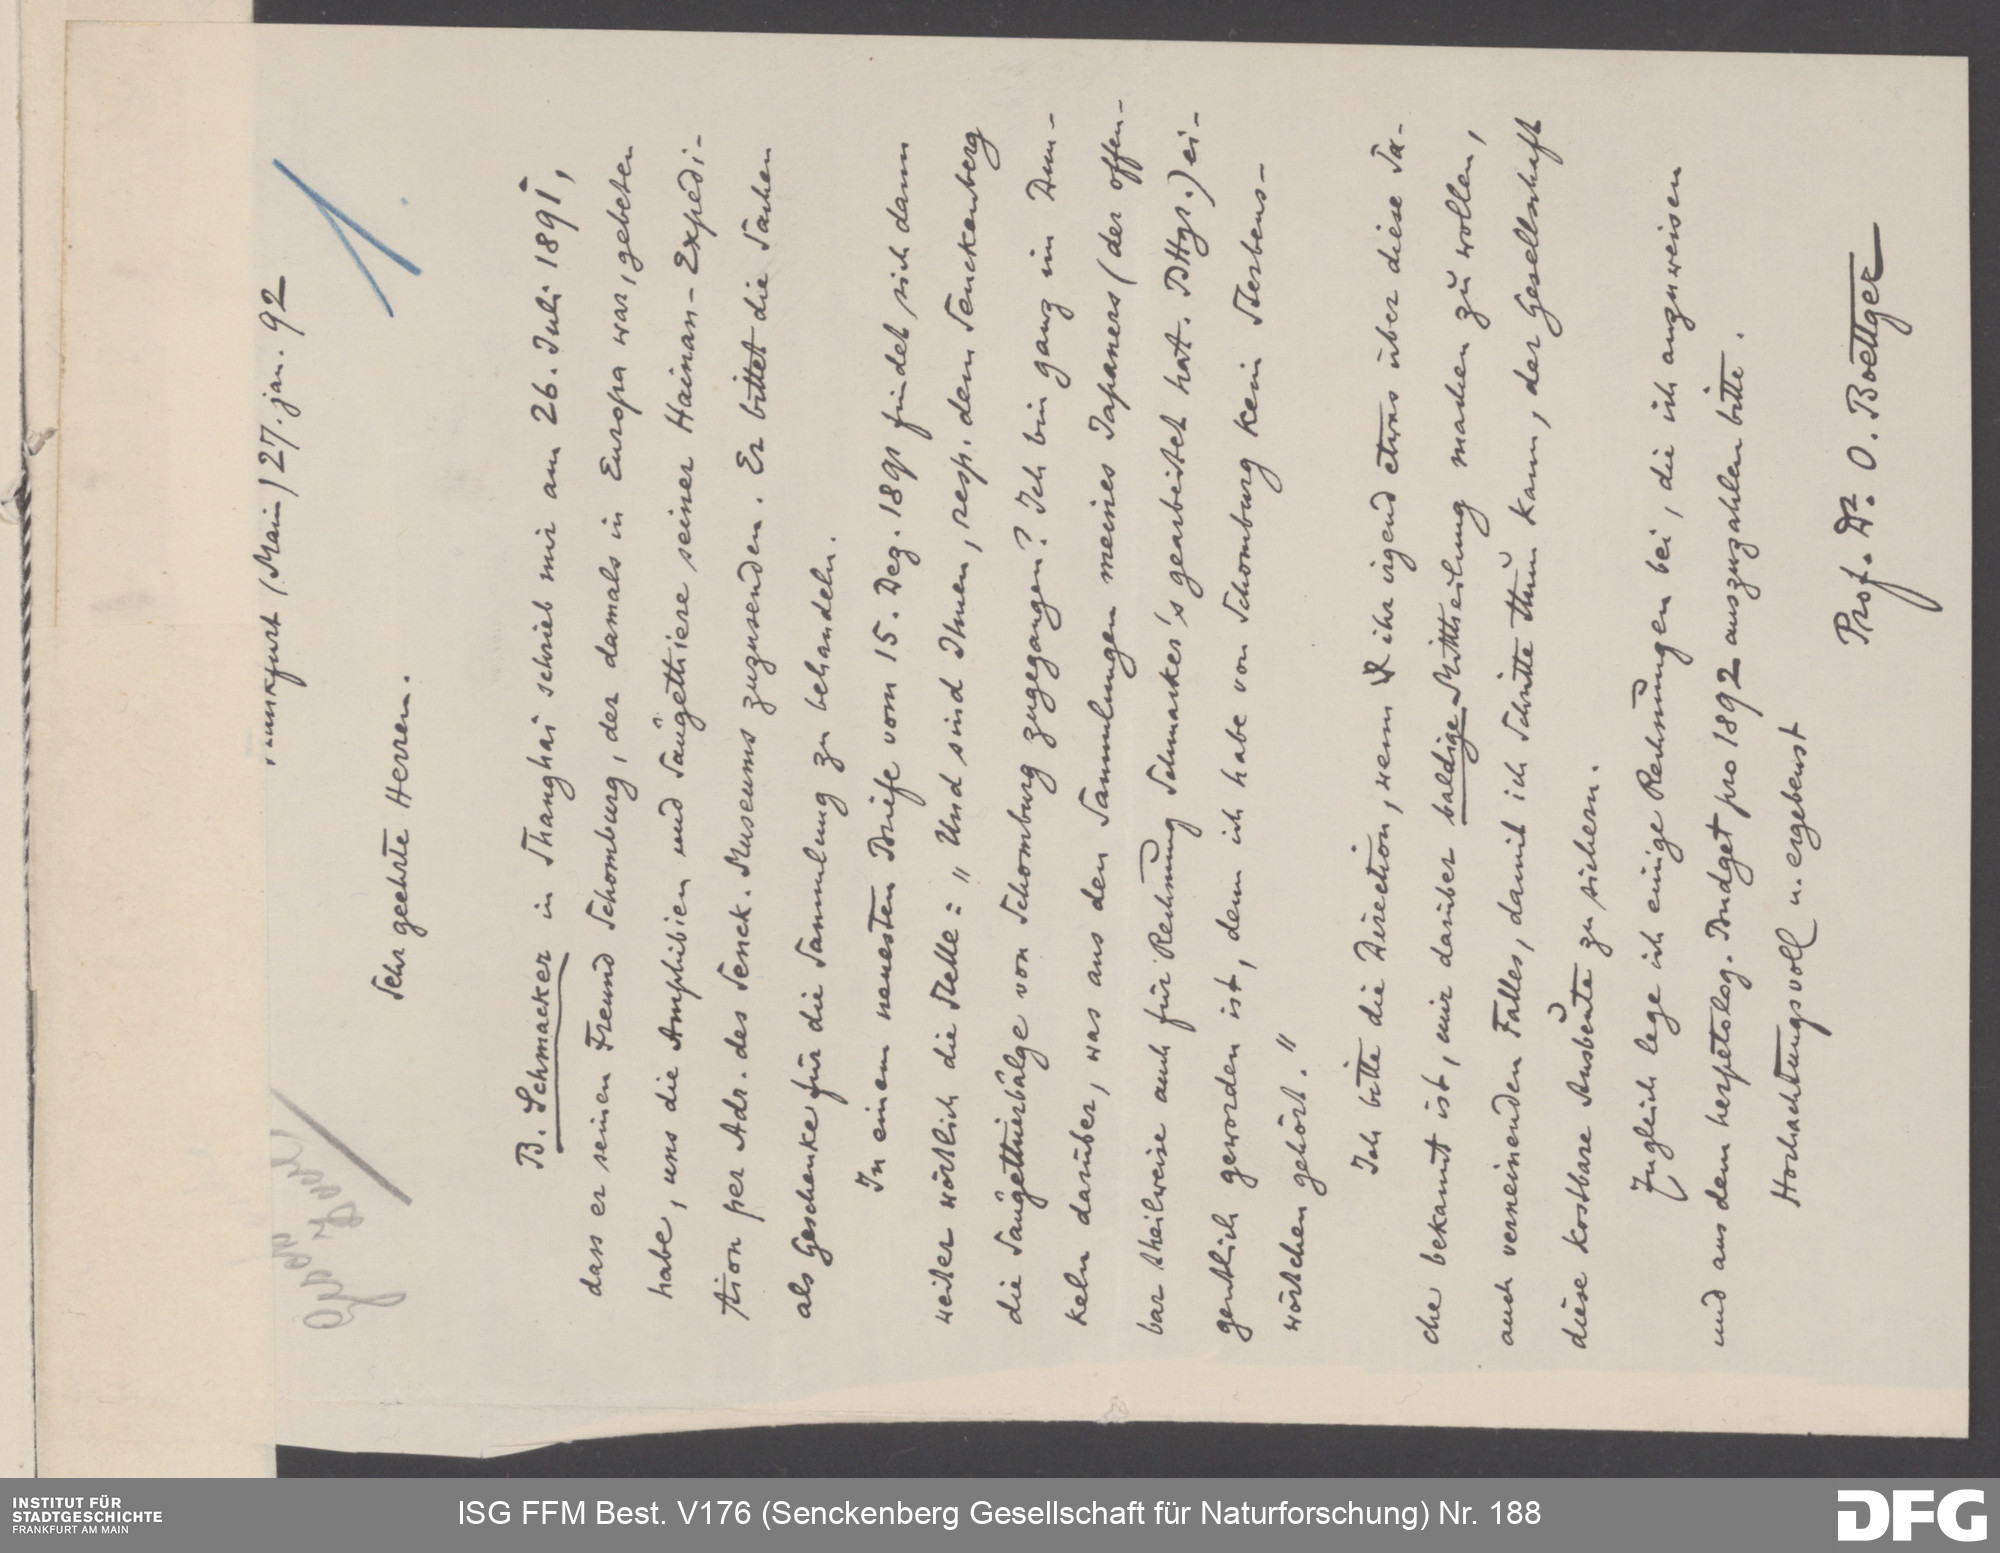 Frankfurt (Main) 27. jan. 92
Sehr geehrte Herren.
B. Schmacker in Shanghai schrieb mir am 26. Juli 1891,
dass er seinen Freund Schomburg, der damals in Europa war, gebeten
habe, uns die Amphibien und Säugethiere seiner Hainan-Expedi-
tion per Adr. des Senck. Museums zuzusenden. Er bittet die Sachen
als Geschenke für die Sammlung zu behandeln.
In einem neuesten Briefe vom 15. Dez. 1891 findet sich dann
weiter wörtlich die Stelle: „Und sind Ihnen, resp. dem Senckenberg
die Säugethierbälge von Schomburg zugegangen? Ich bin ganz im Dun-
keln darüber, was aus den Sammlungen meines Japaners (der offen-
bar theilweise auch für Rechnung Schmacker's gearbeitet hat. Bttgr.) ei-
gentlich geworden ist, denn ich habe von Schomburg kein Sterbens-
wörtchen gehört."
Ich bitte die Direction, wenn ihr irgend etwas über diese Sa-
che bekannt ist, mir darüber baldige Mittheilung machen zu wollen,
auch verneinenden Falles, damit ich Schritte thun kann, der Gesellschaft
diese kostbare Ausbeute zu sichern.
Zugleich lege ich einige Rechnungen bei, die ich anzuweisen
und aus dem herpetolog. Budget pro 1892 auszuzahlen bitte.
Hochachtungsvoll u. ergebenst
Prof. Dr. O. Boettger
INSTITUT FÜR
STADTGESCHICHTE
FRANKFURT AM MAIN
ISG FFM Best. V176 (Senckenberg Gesellschaft für Naturforschung) Nr. 188
DFG